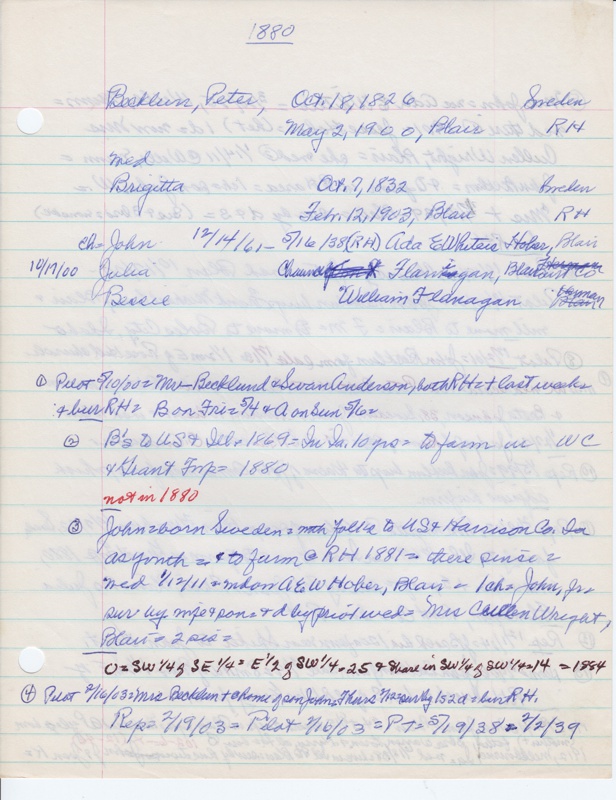 1880
Becklun, Peter, Oct. 18, 1826 Sweden
May 2, 1900, Blair RH
med
Brigitta Oct. 7, 1832 Sweden
Feb. 12, 1903, Blair RH
ch= John 12/14/61 - 5/16/38 (RH) Ada E Whiteis Hober, Blair
10/17/00 Julia Flanigan, Blair
Bessie William Flanagan Herman
① Pilot 5/10/00 = Mr - Becklund & Swan Anderson, both RH = + last weeks
+ bur RH = B on Fri = 5/4 & A on Sun 5/6 =
② B's to US & Ill. 1869 = In Ia. 10 yrs = to farm in W C
& Grant Twp = 1880
not in 1880
③ John = born Sweden = with folks to US & Harrison Co. Ia
as youth = & to farm @ RH 1881 = there since =
med 1/12/11 = mdom A E W Hober, Blair = 1 ch = John, Jr =
sur by wife & son = + d by prior wed = Mrs Cullen Wright,
Blair = 2 sis =
O = SW 1/4 of SE 1/4 = E 1/2 of SW 1/4 = 25 & share in SW 1/4 of SW 1/4 = 14 = 1884
④ Pilot 2/16/03 = Mrs Becklun + @ home of son John = Thurs 2/12 = sur by 1 s 2 d = bur RH.
Rep = 2/19/03 = Pilot 2/16/03 = PT = 5/19/38 = 2/2/39